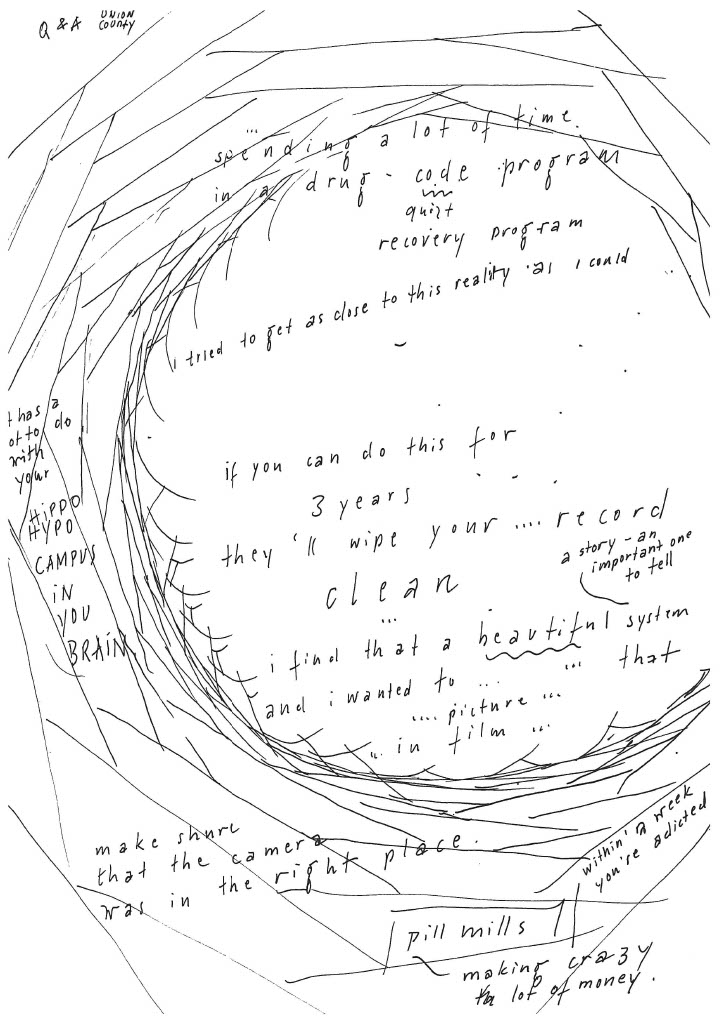 Q & A UNION
COUNTY
...
spending a lot of time.
in a drug - code program
quizt
recovery program
i tried to get as close to this reality as i could
t has a
ot to do
with
your
HiPPO
HYPO
CAMPUS
iN
YOU
BRAIN
if you can do this for
3 years
they'll wipe your .... record
clean
a story - an
important one
to tell
...
i find that a beautiful system
and i wanted to ... ... that
.... picture ...
... in film ...
make shure
that the camera
was in the right place.
within' a week
you're adicted
pill mills
making crazy
lot of money.